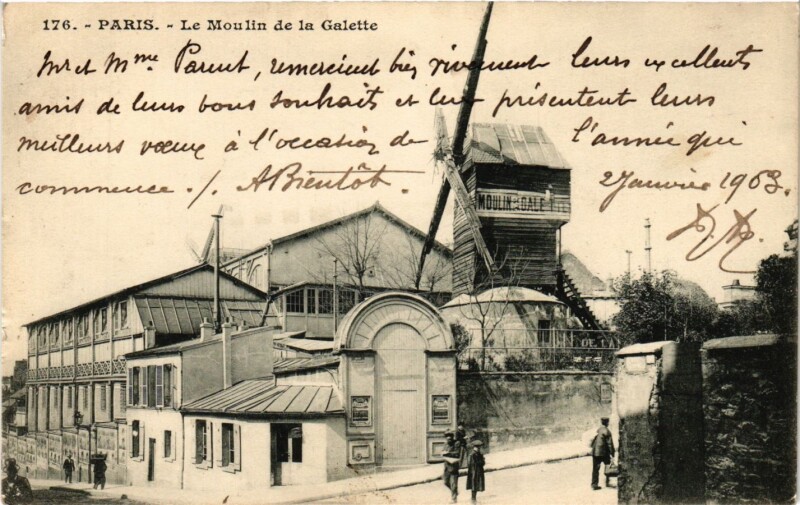 176. - PARIS. - Le Moulin de la Galette
Mr et Mme Parent, remercient bien vivement leurs excellents
amis de leurs bons souhaits et leur présentent leurs
meilleurs vœux à l'occasion de l'année qui
commence ./. A Bientôt.
2 Janvier 1903.
MOULIN DE LA GALETTE
DE LA